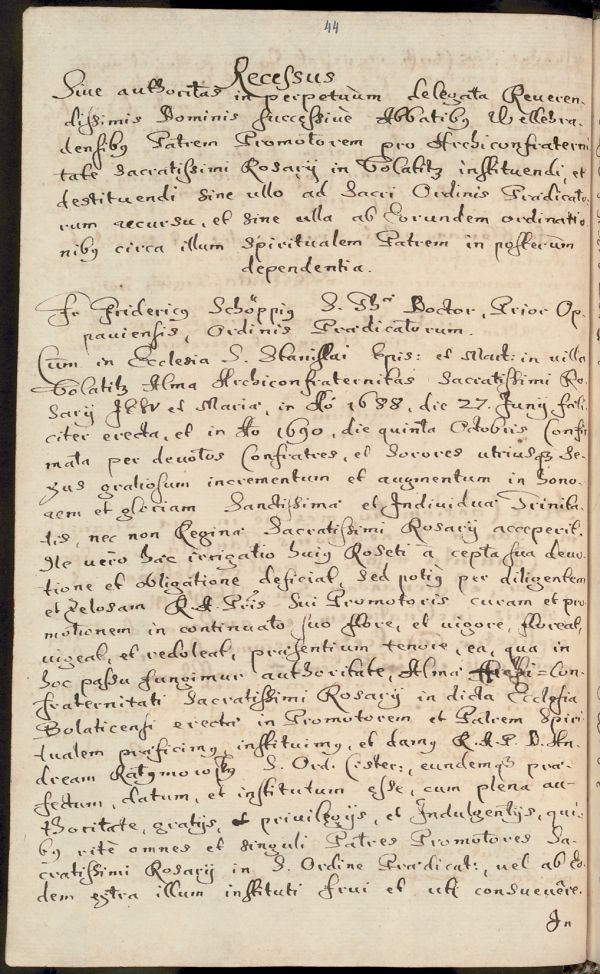 44
Recessus
Siue authoritas in perpetuùm delegata Reueren-
dissimis Dominis successiue Abbatibq Wellehra-
densibq Patrem Promotorem pro Archiconfraterni
tate Sacratissimi Rosarij in Bolatitz instituendi, et
destituendi sine ullo ad Sacri Ordinis Prædicato-
rum recursu, et sine ulla ab Eorundem ordinatio
nibq circa illum Spiritualem Patrem in posterùm
dependentia.
Fr Fridericq Schöppiq S. Thæ Doctor, Prior Op-
pauiensis, Ordinis Prædicatorum.
Cùm in Ecclesia S. Stanislai Epis: et Mart: in villa
Bolatitz Alma Archiconfraternitas Sacratissimi Ro-
sarij JESV et Mariæ, in Aô 1688, die 27. Junij fæli-
citer erecta, et in Ao 1690, die quinta Octobris Confir
mata per deuotos Confratres, et Sorores utriusq se-
xus gratiosum incrementum et augmentum in hono-
rem et gloriam Sanctissimæ et Indiuiduæ Trinita-
tis, nec non Reginæ Sacratissimi Rosarij acceperit.
Ne verò hæc irrigatio huiq Roseti à cepta sua deuo-
tione et obligatione deficiat, sed potiq per diligentem
et zelosam R.A. Pris sui Promotoris curam et pro
motionem in continuato suo flore, et uigore, floreat,
uigeat, et redoleat, præsentium tenore, ea, qua in
hoc passu fungimur authoritate, Almæ Archi=Con-
fraternitati Sacratissimi Rosarij in dicta Ecclesia
Bolaticensi erectæ in Promotorem et Patrem Spiri
tualem præficimq, instituimq, et damq R.A.P. D. An-
dream S. Ord. Cister:, eundemq præ-
fectum, datum, et institutum esse, cum plena au-
thoritate, gratijs, et priuilegijs, et Indulgentijs, qui-
bq ritè omnes et singuli Patres Promotores Sa-
cratissimi Rosarij in S. Ordine Prædicat:, uel ab Eo-
dem extra illum instituti frui et uti consueuêre.
In